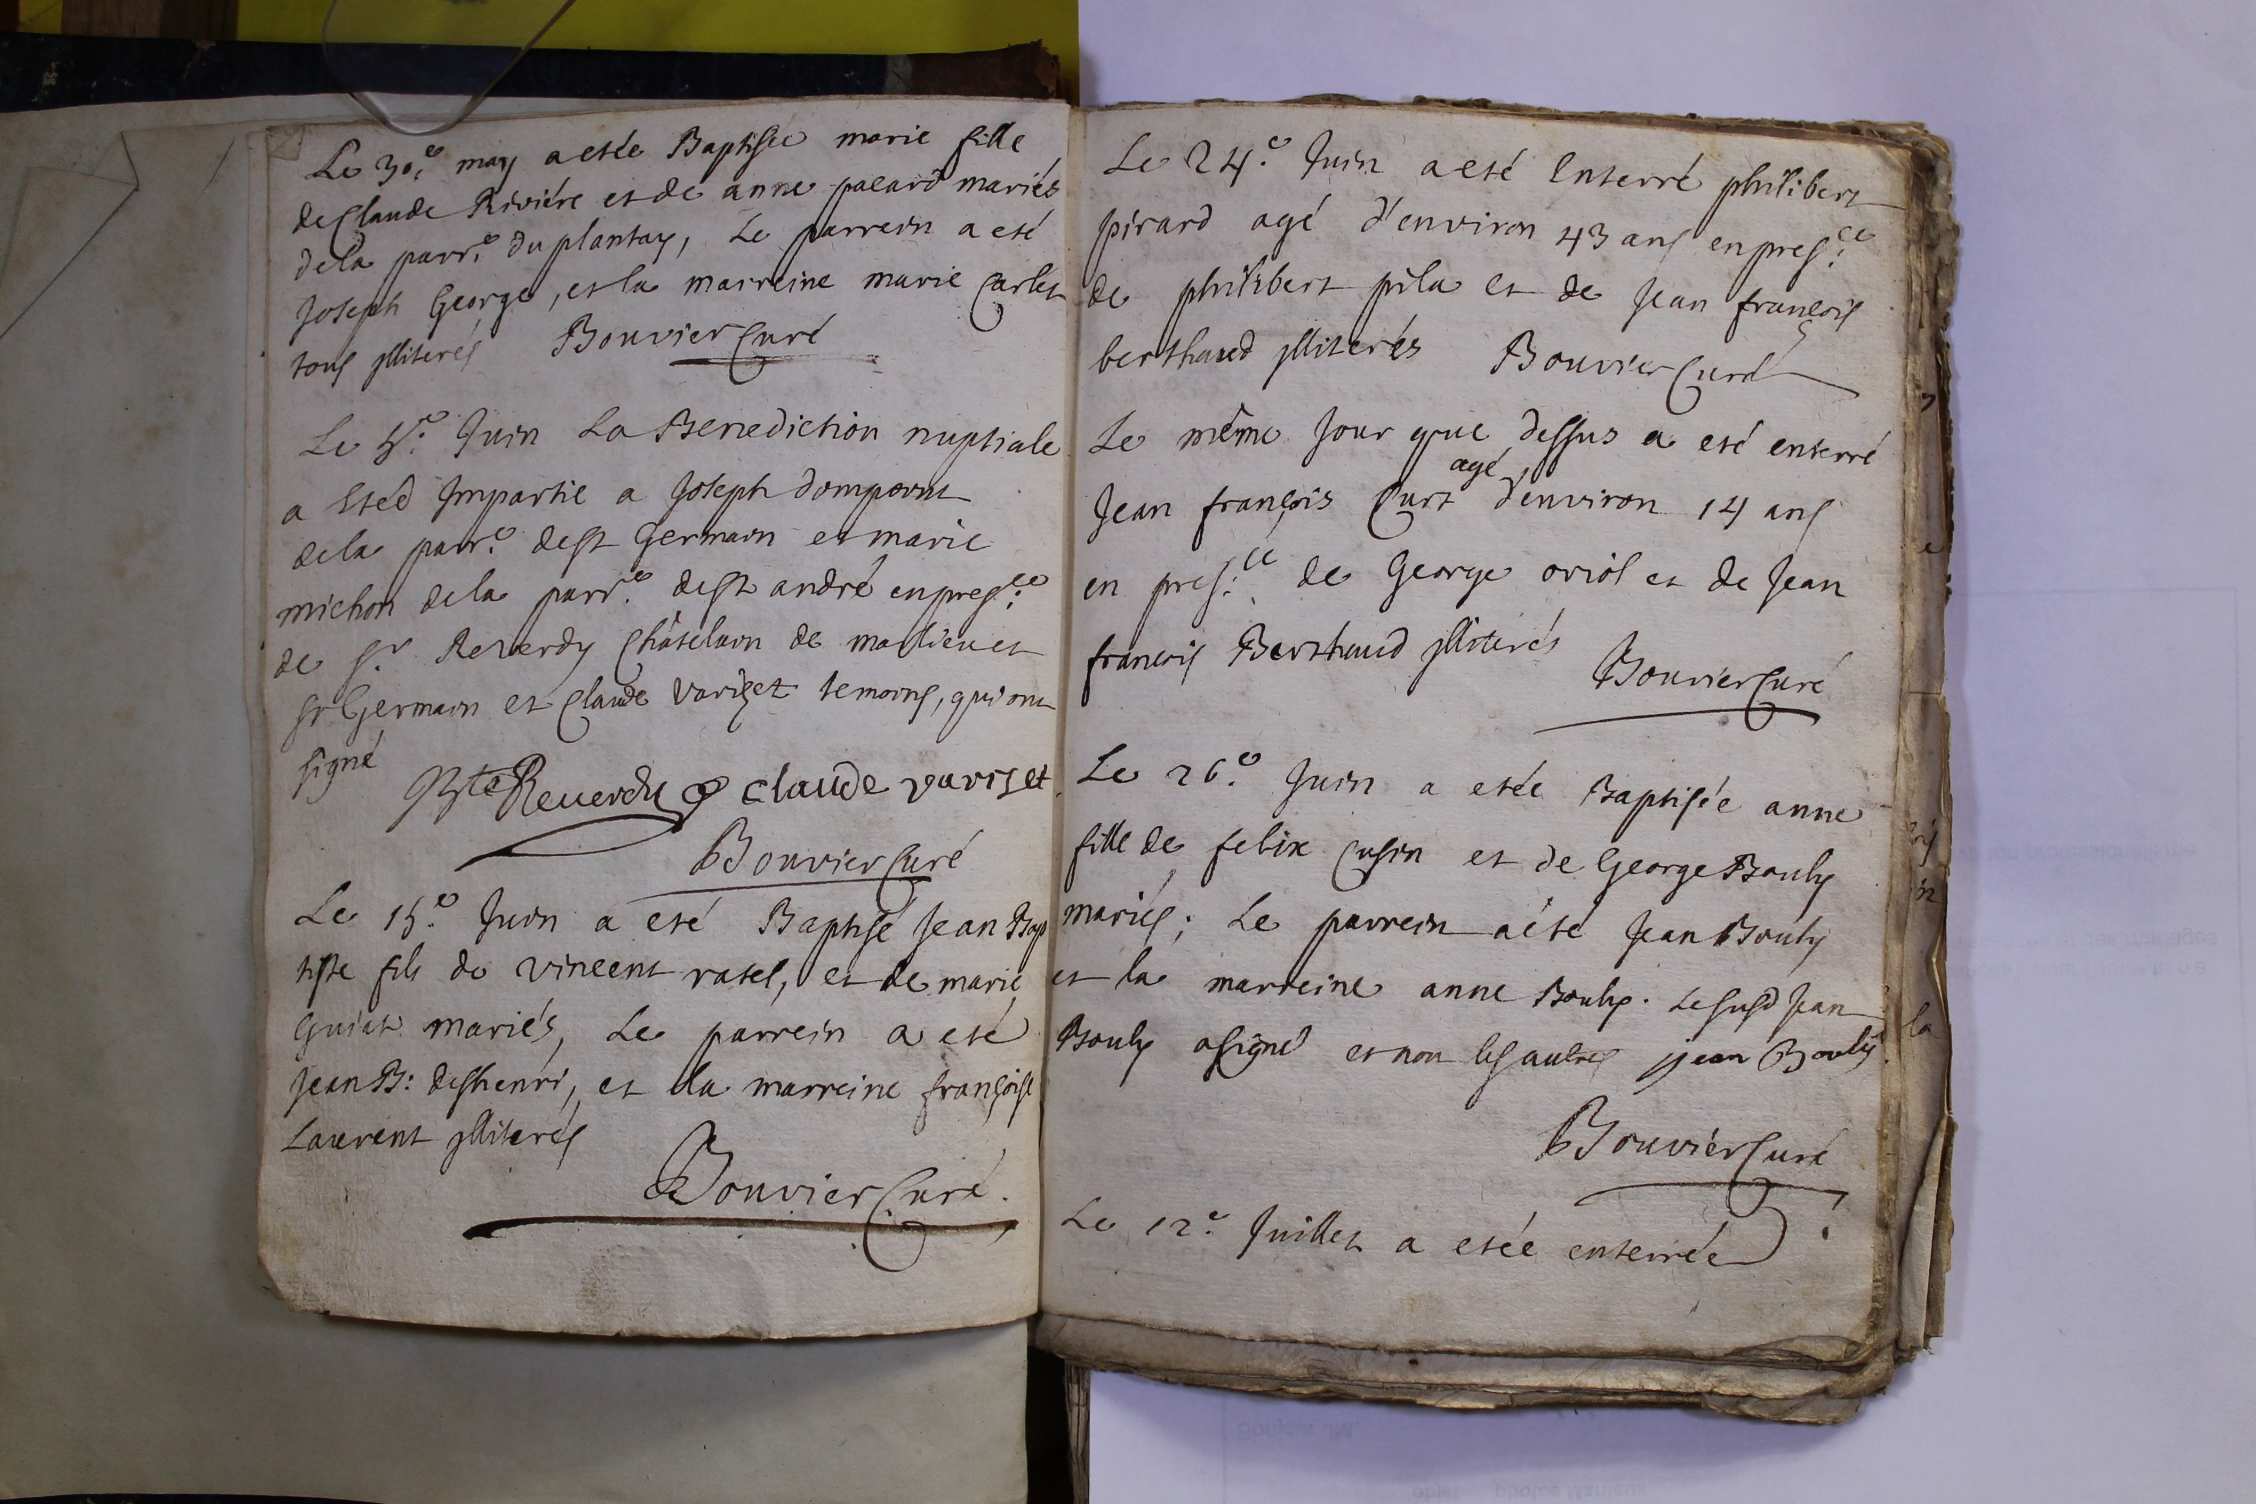 Le 30.e may a estée Baptisée marie fille
de Claude Riviére et de anne pacard mariés
dela parr.e du plantay, Le parrein a eté
Joseph George, et la marreine marie Carlet
tous illiterés Bouvier Curé
Le 5.e Juin La Benediction nuptiale
a Eteé Impartie a Joseph dompoint
dela parr.e de st Germain et marie
michon dela parr.e de st andré en pres.ce
de Sr. Reverdy Châtelain de marlieu et
st Germain et Claude Varizet temoins, qui ont
signé
Reuerdy Claude varizet
Bouvier Curé
Le 15.e Juin a eté Baptisé Jean Bap
tiste fils de vincent ratel, et de marie
Guiat mariés, Le parrein a eté
Jean B: desthenri, et la marreine françoise
Laurent illiterés
Bouvier Curé.
Le 24.e Juin a eté Enterré philibert
pirard agé d'environ 43 ans en pres.ce
de philibert pila et de Jean françois
berthaud illiterés Bouvier Curé
Le même Jour que dessus a eté enterré
Jean françois Curt agé d'environ 14 ans
en pres.ce de George oriol et de Jean
françois Berthaud illiterés
Bouvier Curé
Le 26.e Juin a etée Baptisée anne
fille de felix Cusin et de George Bouly
mariés; Le parrein a été Jean Bouly
et la marreine anne Bouly. Le susd Jean
Bouly a signé et non les autres jean Bouly
Bouvier Curé
Le 12.e Juillet a etée enterrée